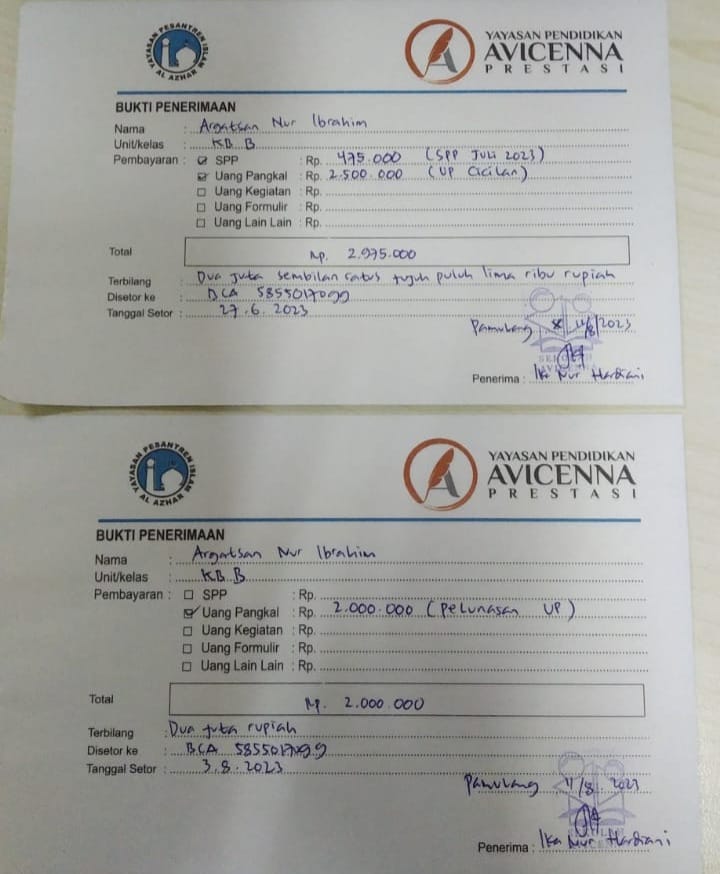 YAYASAN PESANTREN ISLAM
AL AZHAR
YAYASAN PENDIDIKAN
AVICENNA
PRESTASI
BUKTI PENERIMAAN
Nama : Argatsan Nur Ibrahim
Unit/kelas : KB B
Pembayaran : ☑ SPP : Rp. 475.000 (SPP Juli 2023)
☑ Uang Pangkal : Rp. 2.500.000 (UP Cicilan)
☐ Uang Kegiatan : Rp.
☐ Uang Formulir : Rp.
☐ Uang Lain Lain : Rp.
Total Rp. 2.975.000
Terbilang : Dua juta sembilan ratus tujuh puluh lima ribu rupiah
Disetor ke : BCA 5855017099
Tanggal Setor : 27.6.2023
Pamulang 11/8/2023
Penerima : Ika Nur Hardiani
YAYASAN PESANTREN ISLAM
AL AZHAR
YAYASAN PENDIDIKAN
AVICENNA
PRESTASI
BUKTI PENERIMAAN
Nama : Argatsan Nur Ibrahim
Unit/kelas : KB B
Pembayaran : ☐ SPP : Rp.
☑ Uang Pangkal : Rp. 2.000.000 (Pelunasan UP)
☐ Uang Kegiatan : Rp.
☐ Uang Formulir : Rp.
☐ Uang Lain Lain : Rp.
Total Rp. 2.000.000
Terbilang : Dua juta rupiah
Disetor ke : BCA 5855017099
Tanggal Setor : 3.8.2023
Pamulang 11/8 2023
Penerima : Ika Nur Hardiani